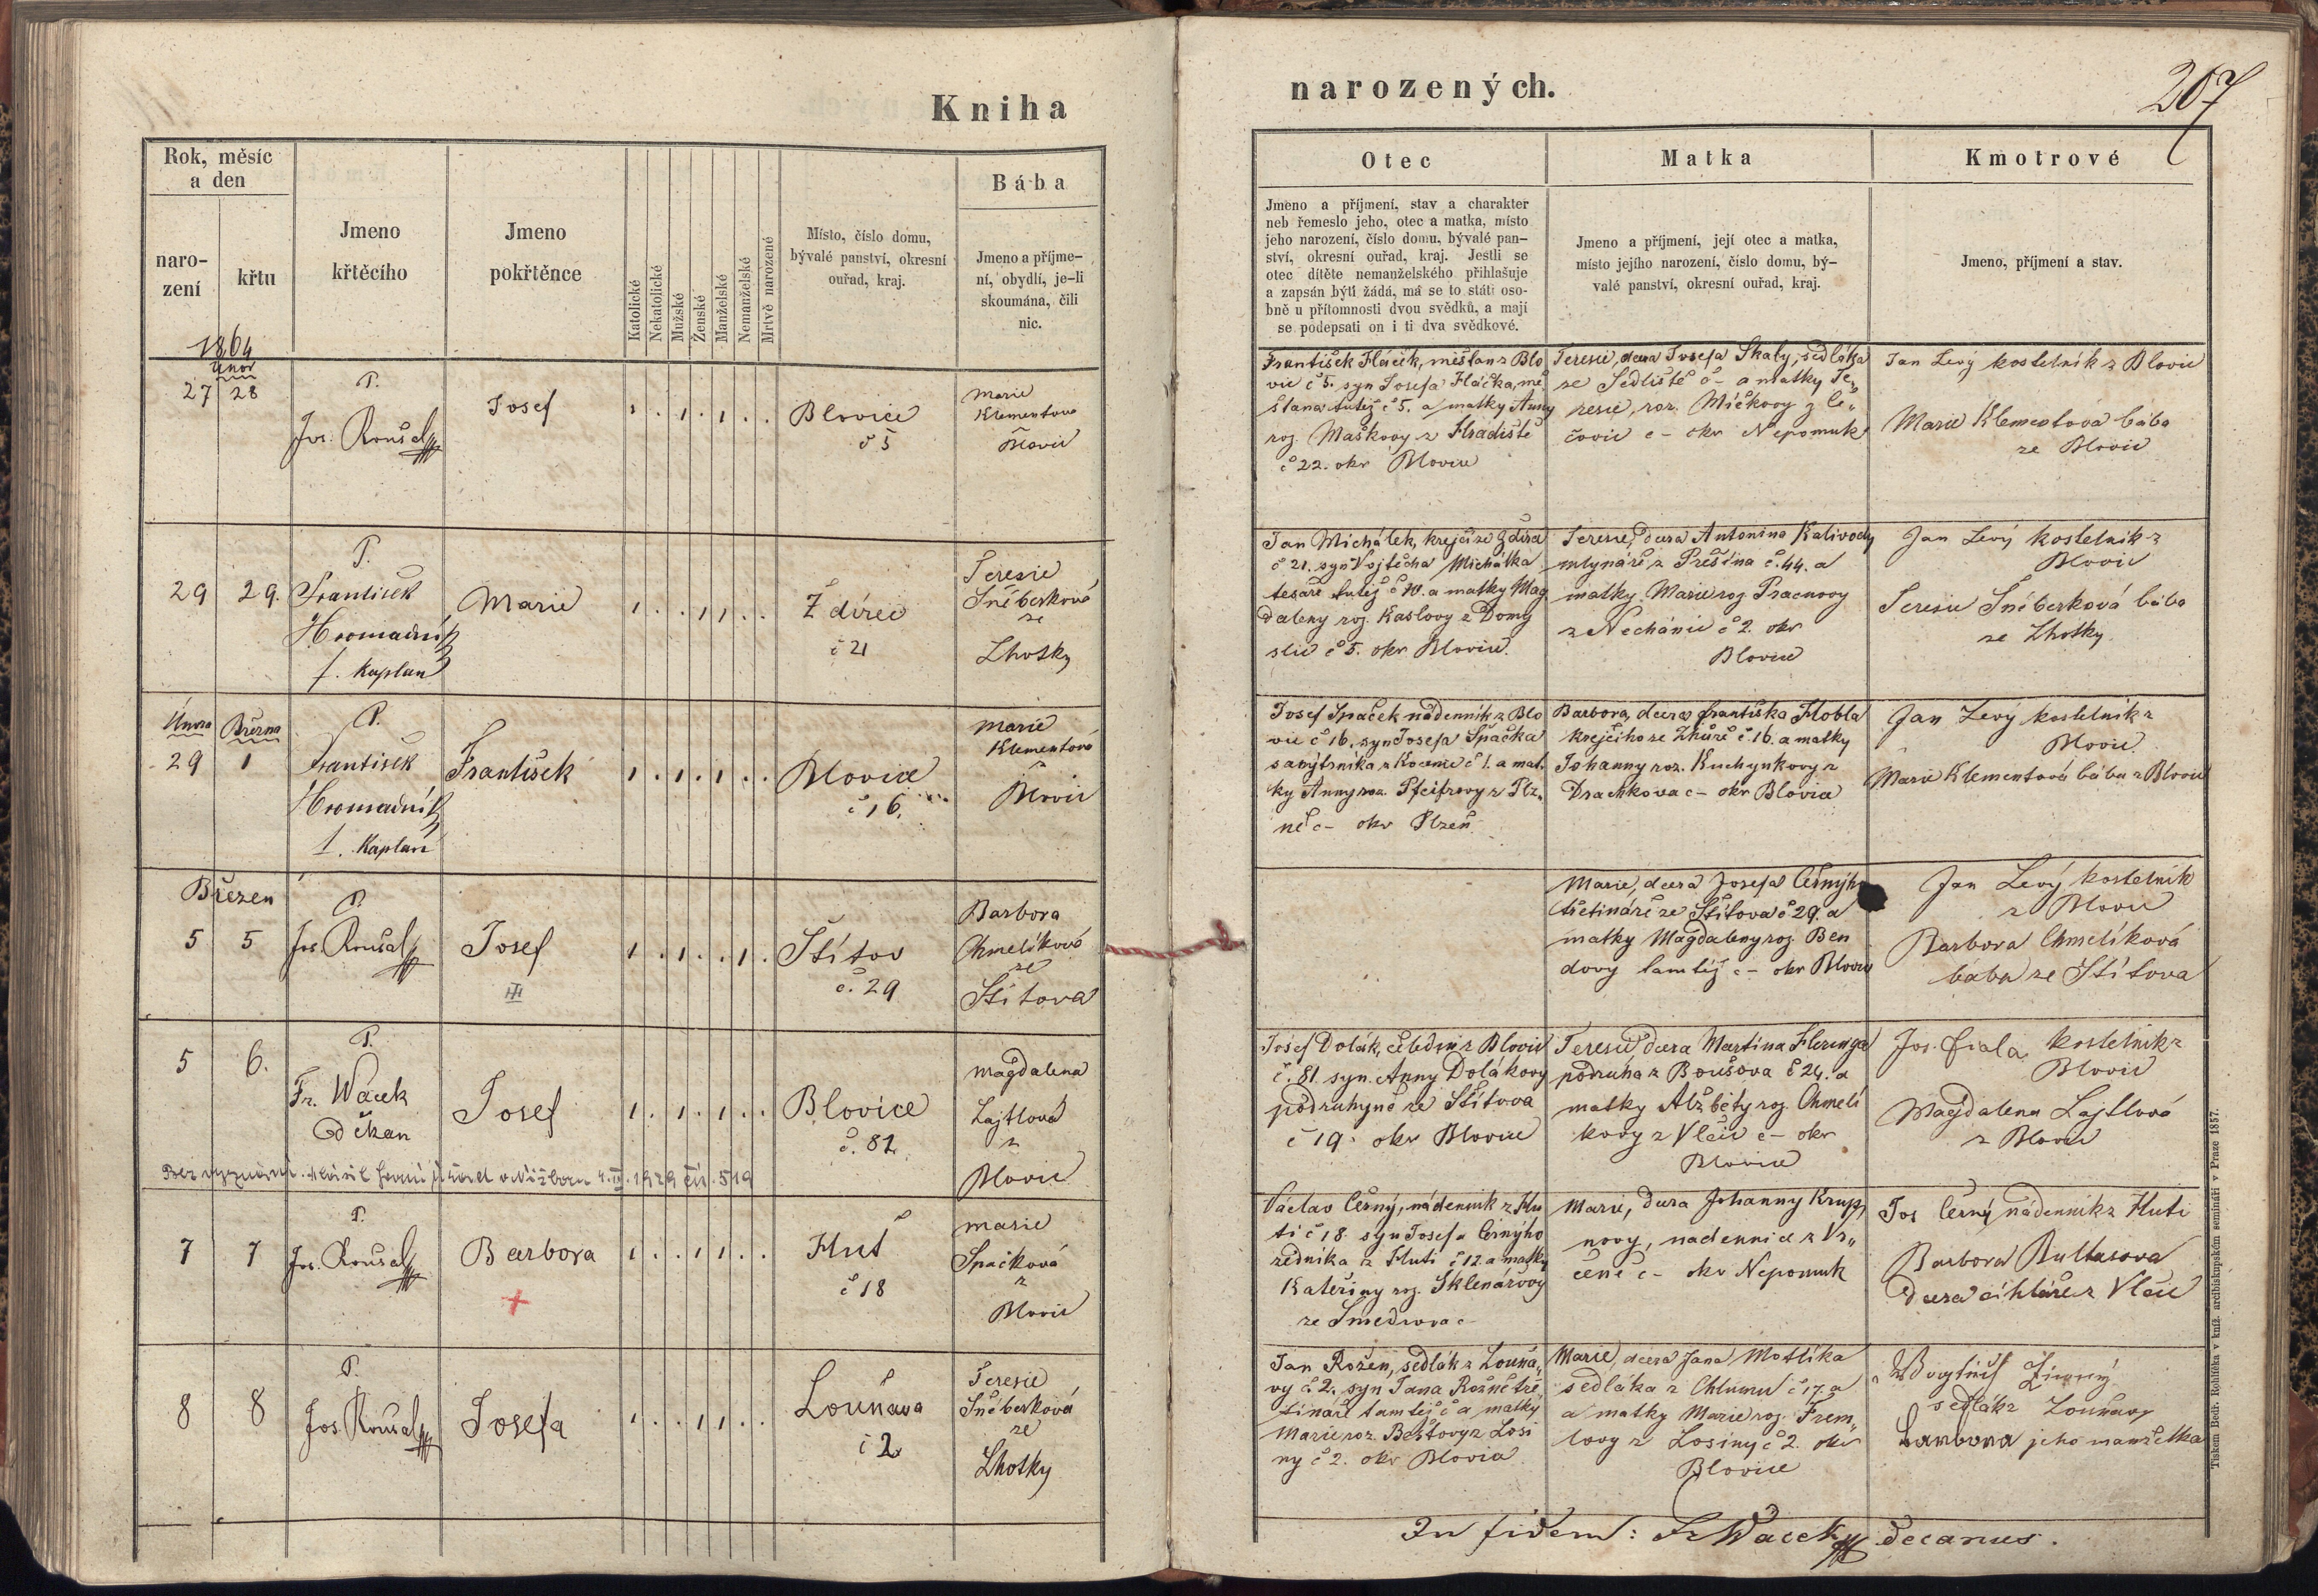 Kniha
narozených.
207
Rok, měsíc
a den
naro-
zení
křtu
Jmeno
křtěcího
Jmeno
pokřtěnce
Katolické
Nekatolické
Mužské
Ženské
Manželské
Nemanželské
Mrtvě narozené
Místo, číslo domu,
bývalé panství, okresní
ouřad, kraj.
Bába
Jmeno a příjme-
ní, obydlí, je-li
skoumána, čili
nic.
Otec
Jmeno a příjmení, stav a charakter
neb řemeslo jeho, otec a matka, místo
jeho narození, číslo domu, bývalé pan-
ství, okresní ouřad, kraj. Jestli se
otec dítěte nemanželského přihlašuje
a zapsán býti žádá, má se to státi oso-
bně u přítomnosti dvou svědků, a mají
se podepsati on i ti dva svědkové.
Matka
Jmeno a příjmení, její otec a matka,
místo jejího narození, číslo domu, bý-
valé panství, okresní ouřad, kraj.
Kmotrové
Jmeno, příjmení a stav.
1864
Únor
27 28
P.
Jos. Roušal
Josef
1 . 1 . 1 . .
Blovice
č 5
Marie
Klementova
Blovic
František Flaček, mešťan z Blo
vic č 5. syn Josefa Flačka, mě
šťana tutéj č 5. a matky Anny
roz. Maškovy z Hradiště
č 22. okr Blovice
Teresie, dcera Josefa Skaly, sedláka
ze Sedliště č – a matky Te„
resie, roz. Mičkovy z Le„
čovic c – okr Nepomuk
Jan Levý kostelník z Blovic
Marie Klementova bába
ze Blovic
29 29.
P.
František
Hromadník
f. Kaplan
Marie
1 . . 1 1 . .
Ždírec
č 21
Teresie
Sněberková
ze
Lhotky
Jan Michálek, krejčí ze Ždírce
č 21. syn Vojtěcha Michálka
tesaře tutéj č 10. a matky Mag
daleny roz. Kaslovy z Domy
slic č 5. okr Blovice.
Teresie, dcera Antonina Kalivody
mlynáře z Prešína č. 44. a
matky Marie roz. Pracnovy
z Nechánic č 2. okr
Blovice
Jan Levý kostelník z
Blovic
Teresie Sněberková bába
ze Lhotky
Února Března
29 1
P.
František
Hromadník
f. Kaplan
František
1 . 1 . 1 . .
Blovice
č 16.
Marie
Klementová
z
Blovic
Josef Spaček nádenník z Blo
vic č 16. syn Josefa Spačka
sanýtrníka z Kocenic č 1. a mat
ky Anny roz. Pfeifrovy z Plz„
ně c – okr Plzeň
Barbora, dcera Františka Hobla
krejčího ze Zhůře č 16. a matky
Johanny roz. Kuchynkovy z
Drachkova c – okr Blovice
Jan Levý kostelník z
Blovic
Marie Klementová bába z Blovic
Březen
5 5
P.
Jos. Roušal
Josef
III
1 . 1 . . 1 .
Štítov
č. 29
Barbora
Chmelíková
ze
Štítova
Marie, dcera Josefa Černýho
třetináře ze Štítova č 29. a
matky Magdaleny roz. Ben
dovy tamtéj c – okr Blovic
Jan Levý kostelník
z Blovic
Barbora Chmelíková
bába ze Štítova
5 6.
P.
Fr. Wácek
děkan
Josef
1 . 1 . 1 . .
Blovice
č. 81.
Magdalena
Lajtlová
z
Blovic
Bez vyznání. 1929 čís. 519
Josef Dolák, čeledín z Blovic
č. 81. syn Anny Dolákovy
podruhyně ze Štítova
č 19. okr Blovice
Teresie dcera Martina Fleringa
podruha z Boušova č 24. a
matky Alžběty roz. Chmelí
kovy z Vlčic c – okr
Blovice
Jos. Fiala, kostelník z
Blovic
Magdalena Lajtlová
z Blovic
7 7
P.
Jos. Roušal
Barbora
1 . . 1 1 . .
Huť
č 18
Marie
Spačková
z
Blovic
Václav Černý, nádenník z Hu
ti č 18. syn Josefa Černýho
zedníka z Huti č 12. a matky
Kateřiny roz. Sklenářovy
ze Smedrova c
Marie, dcera Johanny Krup„
novy, nádennice z Vr„
čeně c – okr Nepomuk
Jos Černý, nádenník z Huti
Barbora Bultasova
dcera cihláře z Vlčic
8 8
P.
Jos. Roušal
Josefa
1 . . 1 1 . .
Louňava
č 2
Teresie
Sněberková
ze
Lhotky
Jan Rožen, sedlák z Louňa„
vy č 2. syn Jana Rožně tře„
tináře tamtéj č a matky
Marie roz. Beštovy z Losi
ny č 2. okr Blovice
Marie, dcera Jana Motlíka
sedláka z Chlumu č 17. a
a matky Marie roz. Frem„
lovy z Losiny č 2. okr
Blovice
sedlák z Louňavy
Barbora jeho manželka
In fidem: Fr Wacek decanus.
Tiskem Bedř. Rohlíčka v kníž. arcibiskupském semináři v Praze 1857.